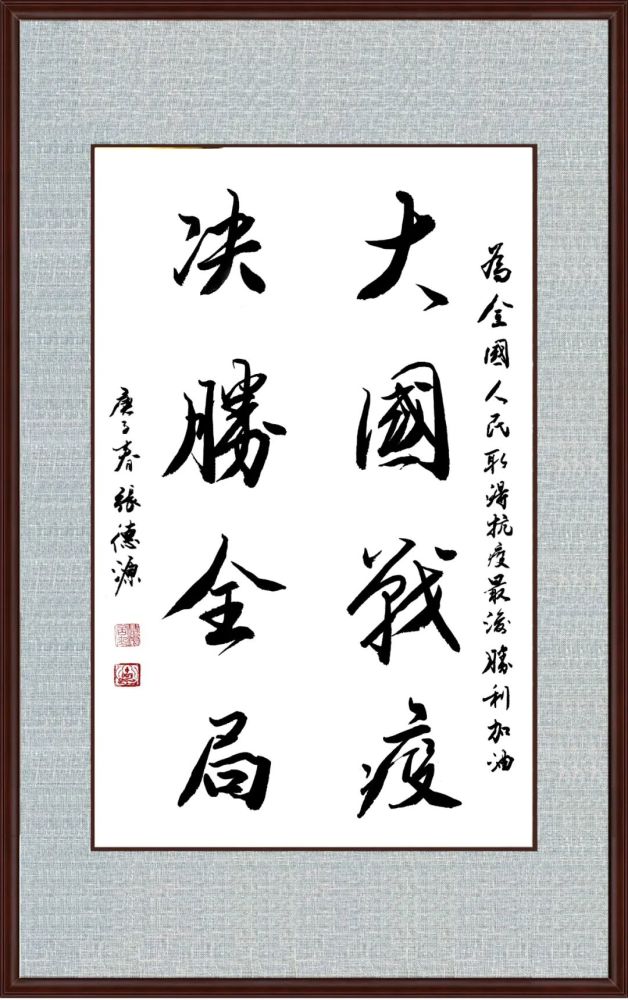 為全國人民取得抗疫最後勝利加油
大國戰疫
决勝全局
庚子春張德源